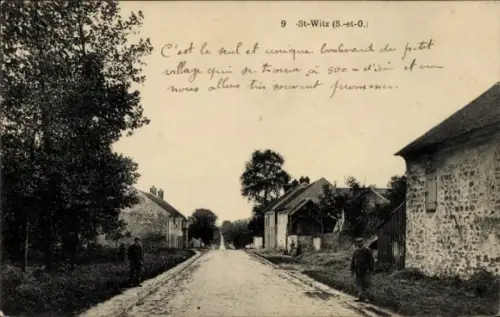 9 -St-Witz (S.-et-O.)
C'est le seul et unique boulevard du petit
village qui se trouve à 500 m d'ici et ou
nous allons très souvent promener.